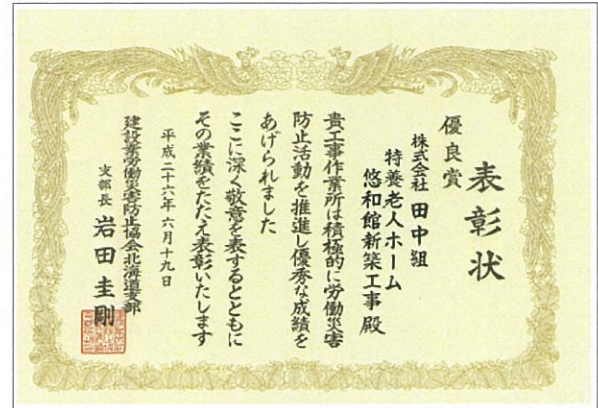 表彰状
優良賞
株式会社 田中組
特養老人ホーム
悠和館新築工事 殿
貴工事作業所は積極的に労働災害
防止活動を推進し優秀な成績を
あげられました
ここに深く敬意を表するとともに
その業績をたたえ表彰いたします
平成二十六年六月十九日
建設業労働災害防止協会北海道支部
支部長 岩田圭剛